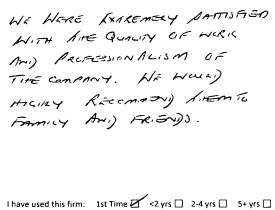 WE WERE EXTREMELY SATISFIED
WITH THE QUALITY OF WORK
AND PROFESSIONALISM OF
THE COMPANY. WE WOULD
HIGHLY RECOMMEND THEM TO
FAMILY AND FRIENDS.
I have used this firm: 1st Time ☑ <2 yrs ☐ 2-4 yrs ☐ 5+ yrs ☐